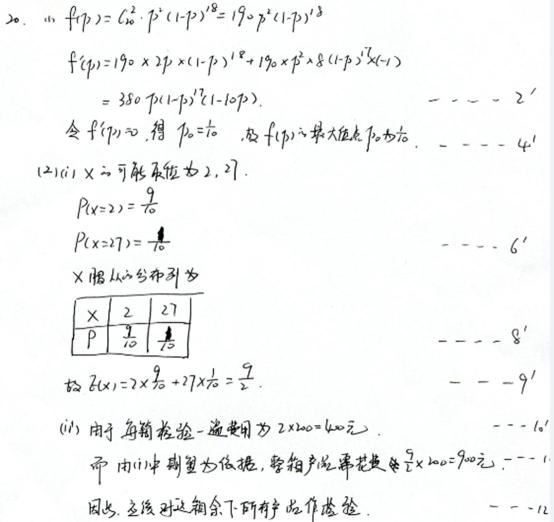 20. (1) f(p) = C₂₀² · p²(1-p)¹⁸ = 190p²(1-p)¹⁸
f'(p) = 190 × 2p × (1-p)¹⁸ + 190 × p² × 8(1-p)¹⁷ × (-1)
= 380p(1-p)¹⁷(1-10p). ---- 2'
令 f'(p)=0, 得 p₀=1/10, 故 f(p)的最大值点p₀为1/10. ---- 4'
(2)(i) X的可能取值为2, 27.
P(X=2) = 9/10
P(X=27) = 1/10 ---- 6'
X服从的分布列为
X 2 27
P 9/10 1/10 ---- 8'
故 E(X) = 2×9/10 + 27×1/10 = 9/2. --- 9'
(ii) 由于每箱检验一遍费用为 2×200=400元. --- 10'
而由(i)中期望为依据, 整箱产品需花费 9/2×200=900元. --- 1
因此, 应该对这箱余下所有产品作检验. --- 12